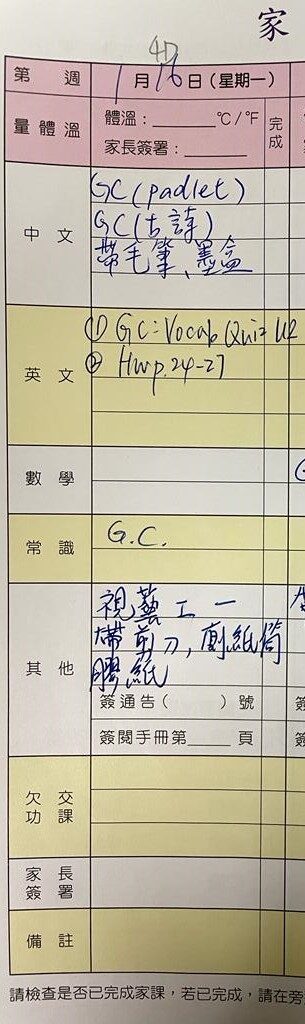 家
4D
第 週 1月16日(星期一)
量體溫 體溫:______°C/°F 完成
家長簽署:______
中文 GC(padlet)
GC(古詩)
帶毛筆、墨盒
英文 ① GC:Vocab Quiz U2
② Hwp.24-27
數學
常識 G.C.
其他 視藝工一
帶剪刀,廁紙筒
膠紙
簽通告( )號
簽閱手冊第____頁
欠交功課
家長簽署
備註
請檢查是否已完成家課,若已完成,請在旁